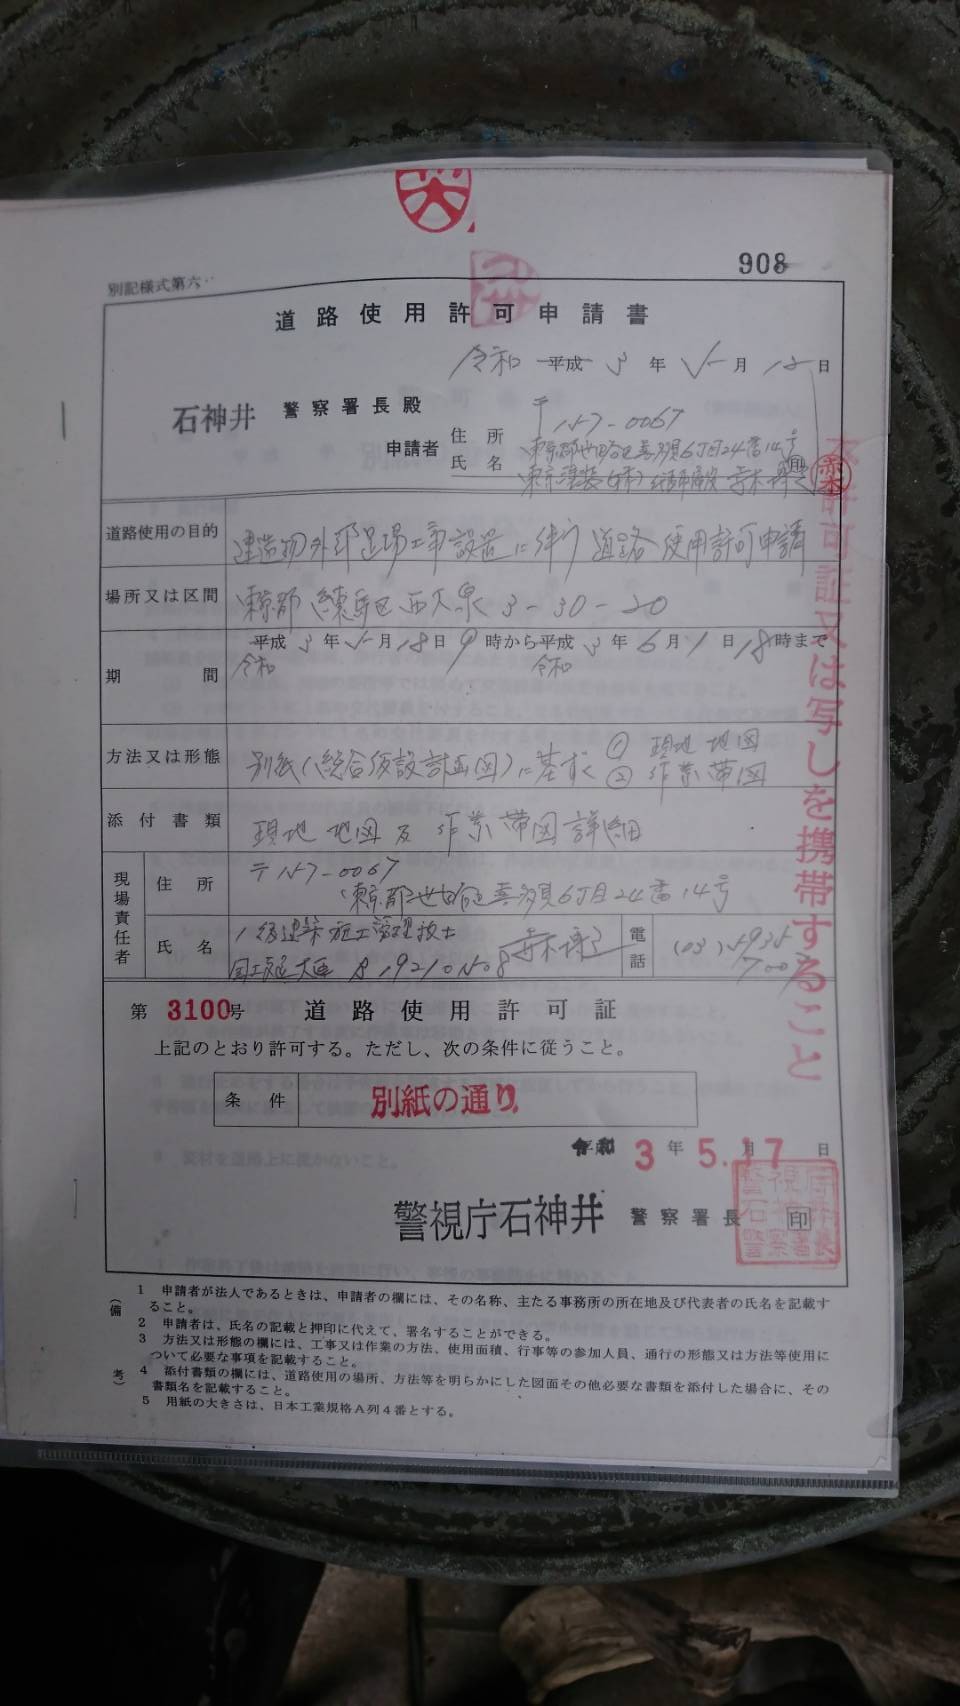 908
別記様式第六
道路使用許可申請書
令和 平成 3年 5月 12日
石神井 警察署長殿
申請者
住所
〒157-0067
東京都世田谷区喜多見6丁目24番14号
氏名
印
道路使用の目的
建造物外部足場工事設置に伴う道路使用許可申請
場所又は区間
東京都練馬区西大泉3-30-20
期間
平成 3年 5月 18日 9時から平成 3年 6月 1日 18時まで
令和 令和
方法又は形態
別紙(総合仮設計画図)に基ずく ① 現地地図
② 作業帯図
添付書類
現地地図及作業帯図詳細
現場責任者
住所
〒157-0067
東京都世田谷区喜多見6丁目24番14号
氏名
1級建築施工管理技士
電話
(03)
第3100号 道路使用許可証
上記のとおり許可する。ただし、次の条件に従うこと。
条件
別紙の通り
令和 3年 5.月17日
警視庁石神井 警察署長 印
警視庁石神井警察署長
許可証又は写しを携帯すること
(備考)
1 申請者が法人であるときは、申請者の欄には、その名称、主たる事務所の所在地及び代表者の氏名を記載す
ること。
2 申請者は、氏名の記載と押印に代えて、署名することができる。
3 方法又は形態の欄には、工事又は作業の方法、使用面積、行事等の参加人員、通行の形態又は方法等使用に
ついて必要な事項を記載すること。
4 添付書類の欄には、道路使用の場所、方法等を明らかにした図面その他必要な書類を添付した場合に、その
書類名を記載すること。
5 用紙の大きさは、日本工業規格A列4番とする。